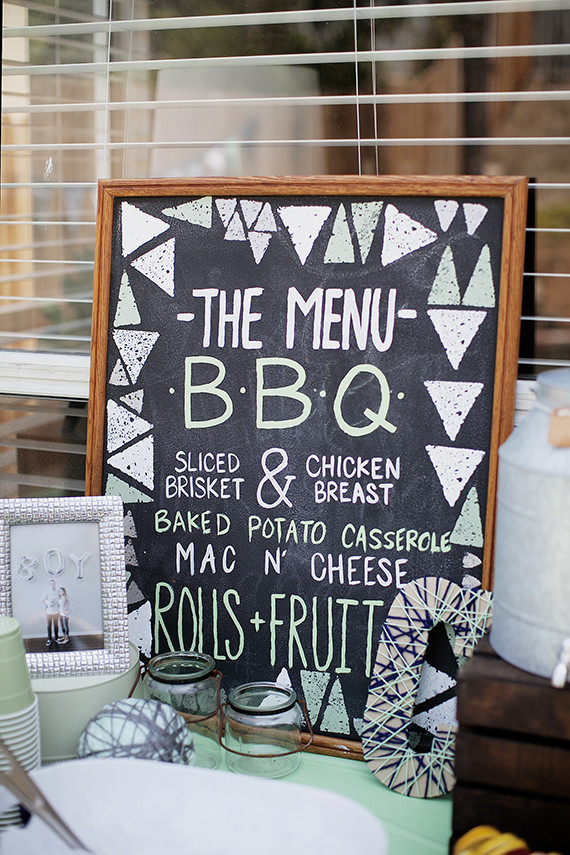 -THE MENU-
·B·B·Q·
SLICED BRISKET & CHICKEN BREAST
BAKED POTATO CASSEROLE
MAC N' CHEESE
ROLLS + FRUIT
BOY